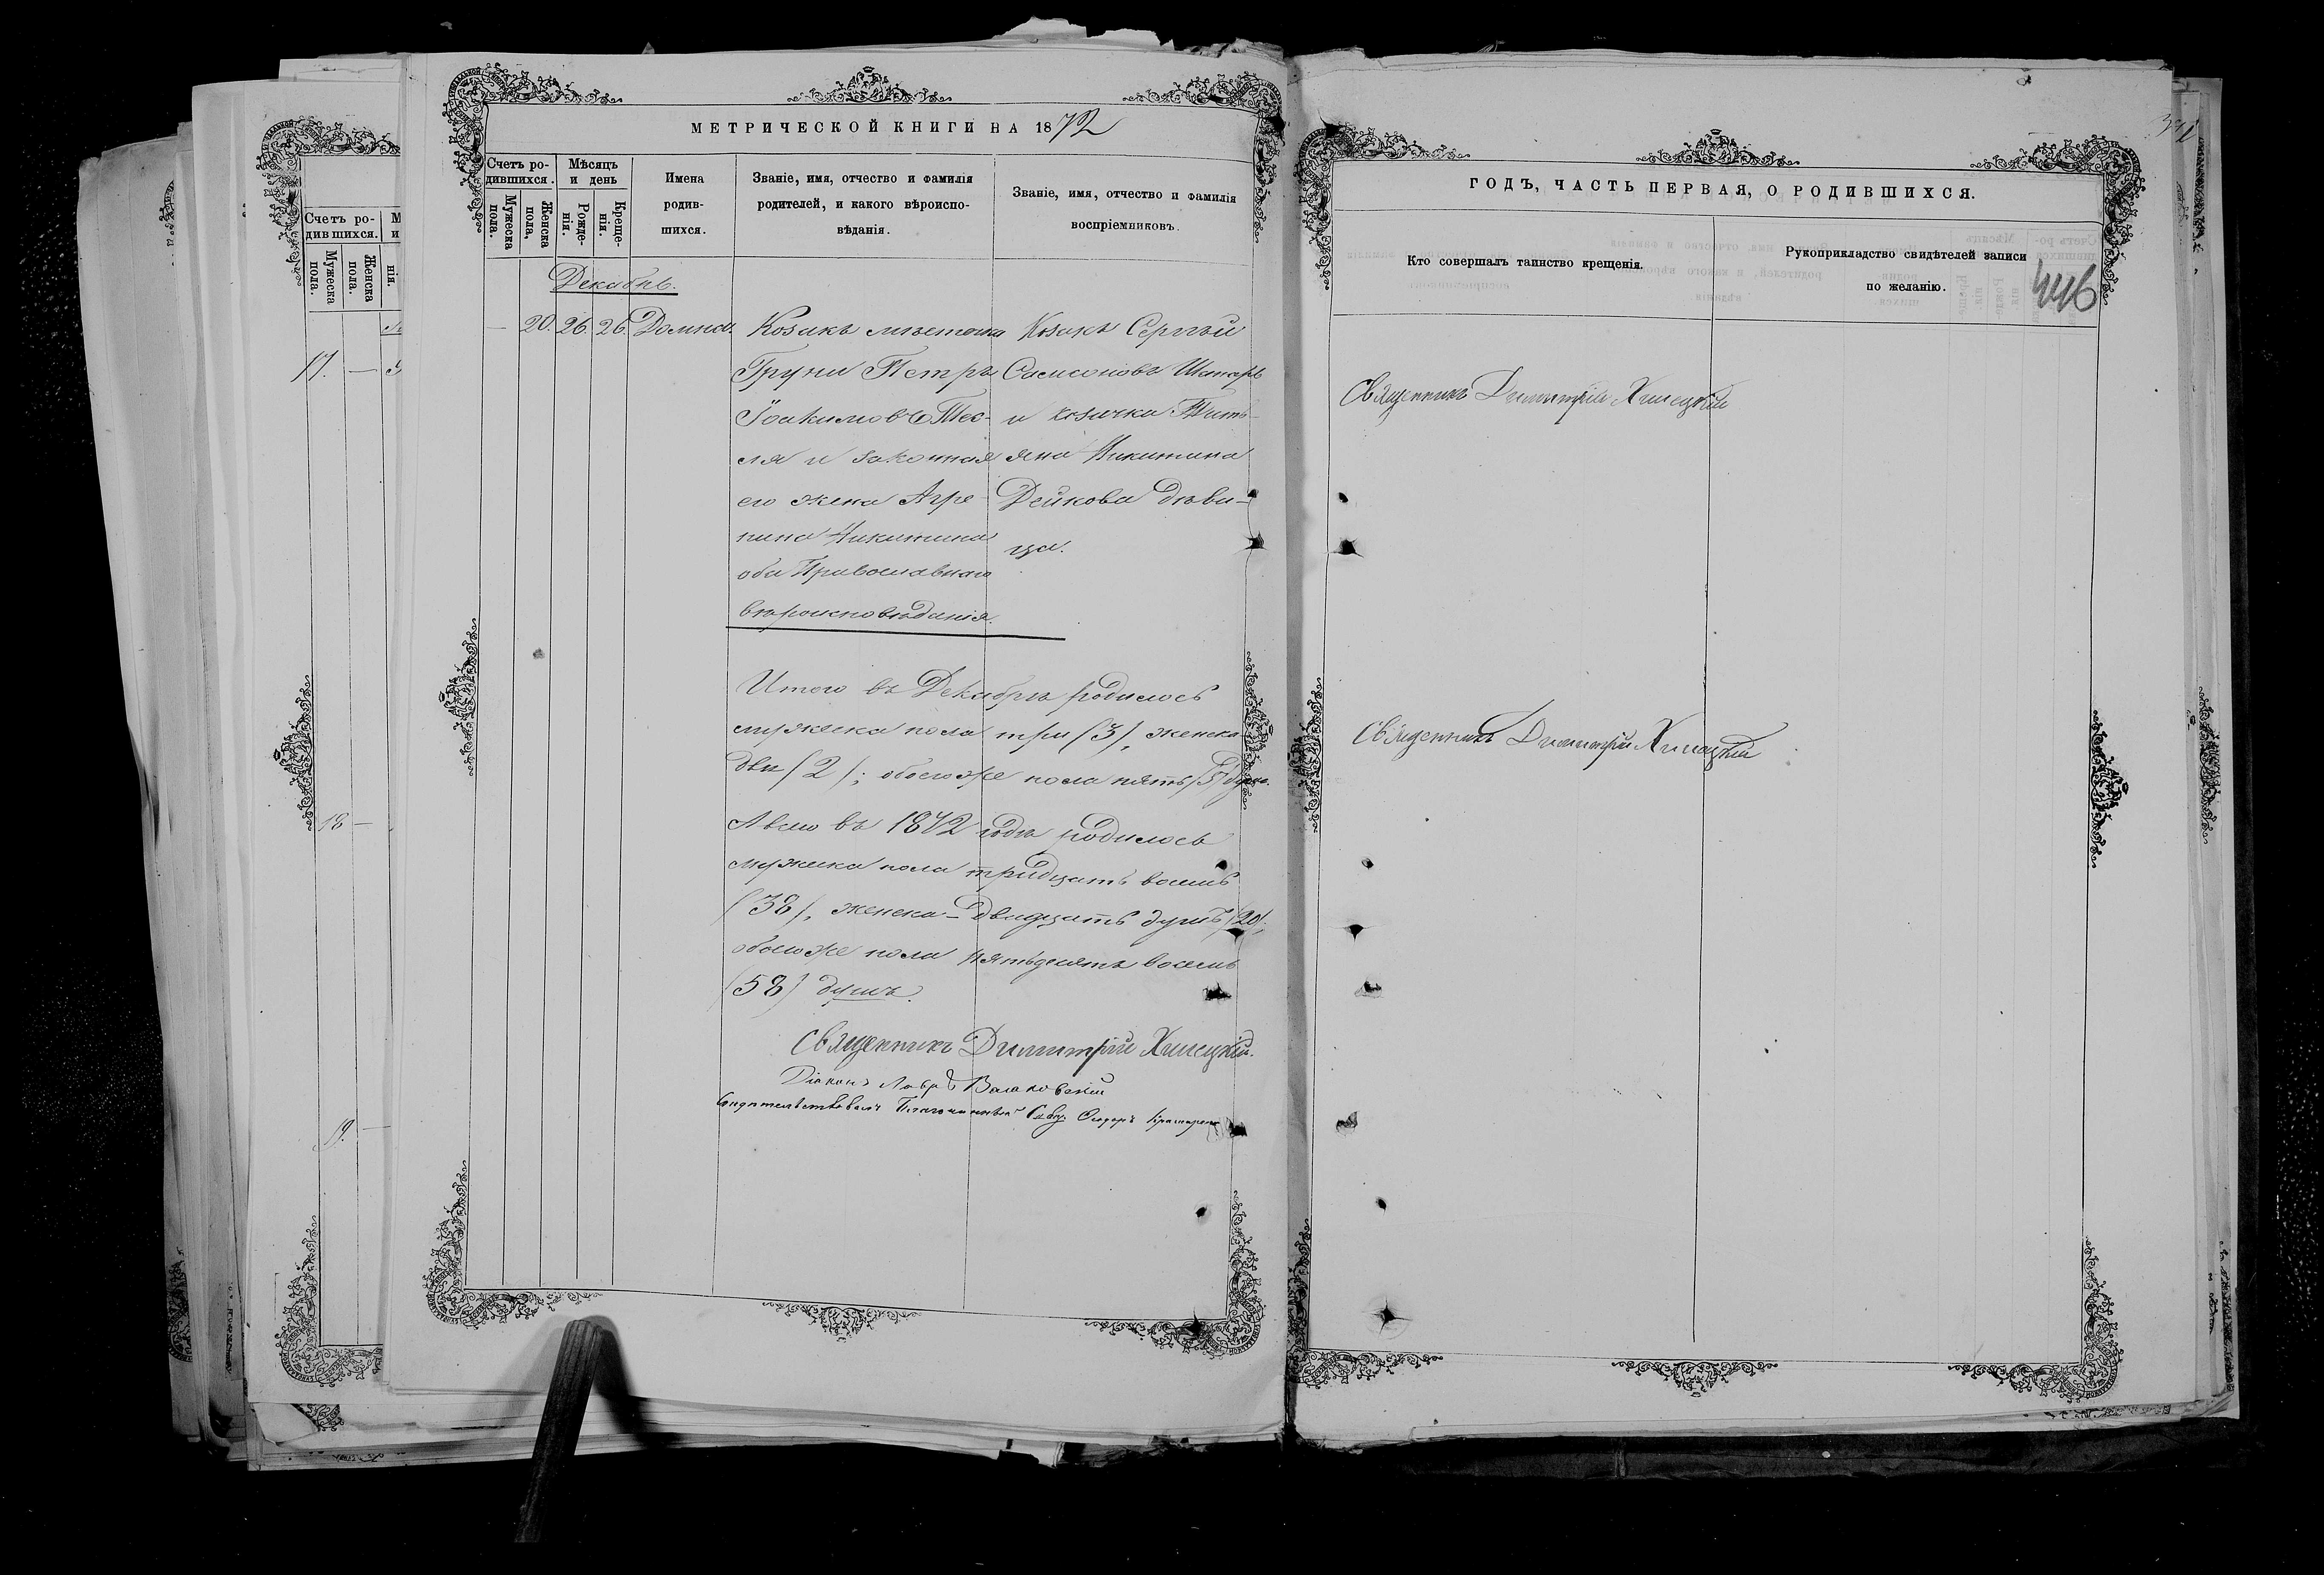 МЕТРИЧЕСКОЙ КНИГИ НА 1872
Счетъ ро-
дившихся.
Мужеска
пола.
Женска
пола.
Мѣсяцъ
и день
Рожде-
нія.
Креще-
нія.
Имена
родив-
шихся.
Званіе, имя, отчество и фамилія
родителей, и какого вѣроиспо-
вѣданія.
Званіе, имя, отчество и фамилія
воспріемниковъ.
Декабрь.
20. 26. 26. Домна.
Козакъ мѣстечка
Груни Петръ
Іоакимовъ Тес-
ля и законная
его жена Агре-
пина Никитина
оба Православнаго
вѣроисповѣданія.
Козакъ Сергѣй
Самсоновъ Шапарь
и козачка Тать-
яна Никитина
Дейкова дѣви-
ца.
Итого въ Декабрѣ родилось
мужеска пола три (3), женска
двѣ (2); обоего же пола пять (5) душъ.
А всего въ 1872 годѣ родилось
мужеска пола тридцать восемь
(38), женска - двадцать душъ (20);
обоего же пола пятьдесятъ восемь
(58) душъ.
Священникъ Димитрій Хилецкій.
Діаконъ
ГОДЪ, ЧАСТЬ ПЕРВАЯ, О РОДИВШИХСЯ.
Кто совершалъ таинство крещенія.
Рукоприкладство свидѣтелей записи
по желанію.
446
Священникъ Димитрій Хилецкій
Священникъ Димитрій Хилецкій
Счетъ ро-
дившихся.
Мужеска
пола.
Женска
пола.
17.
18
19.